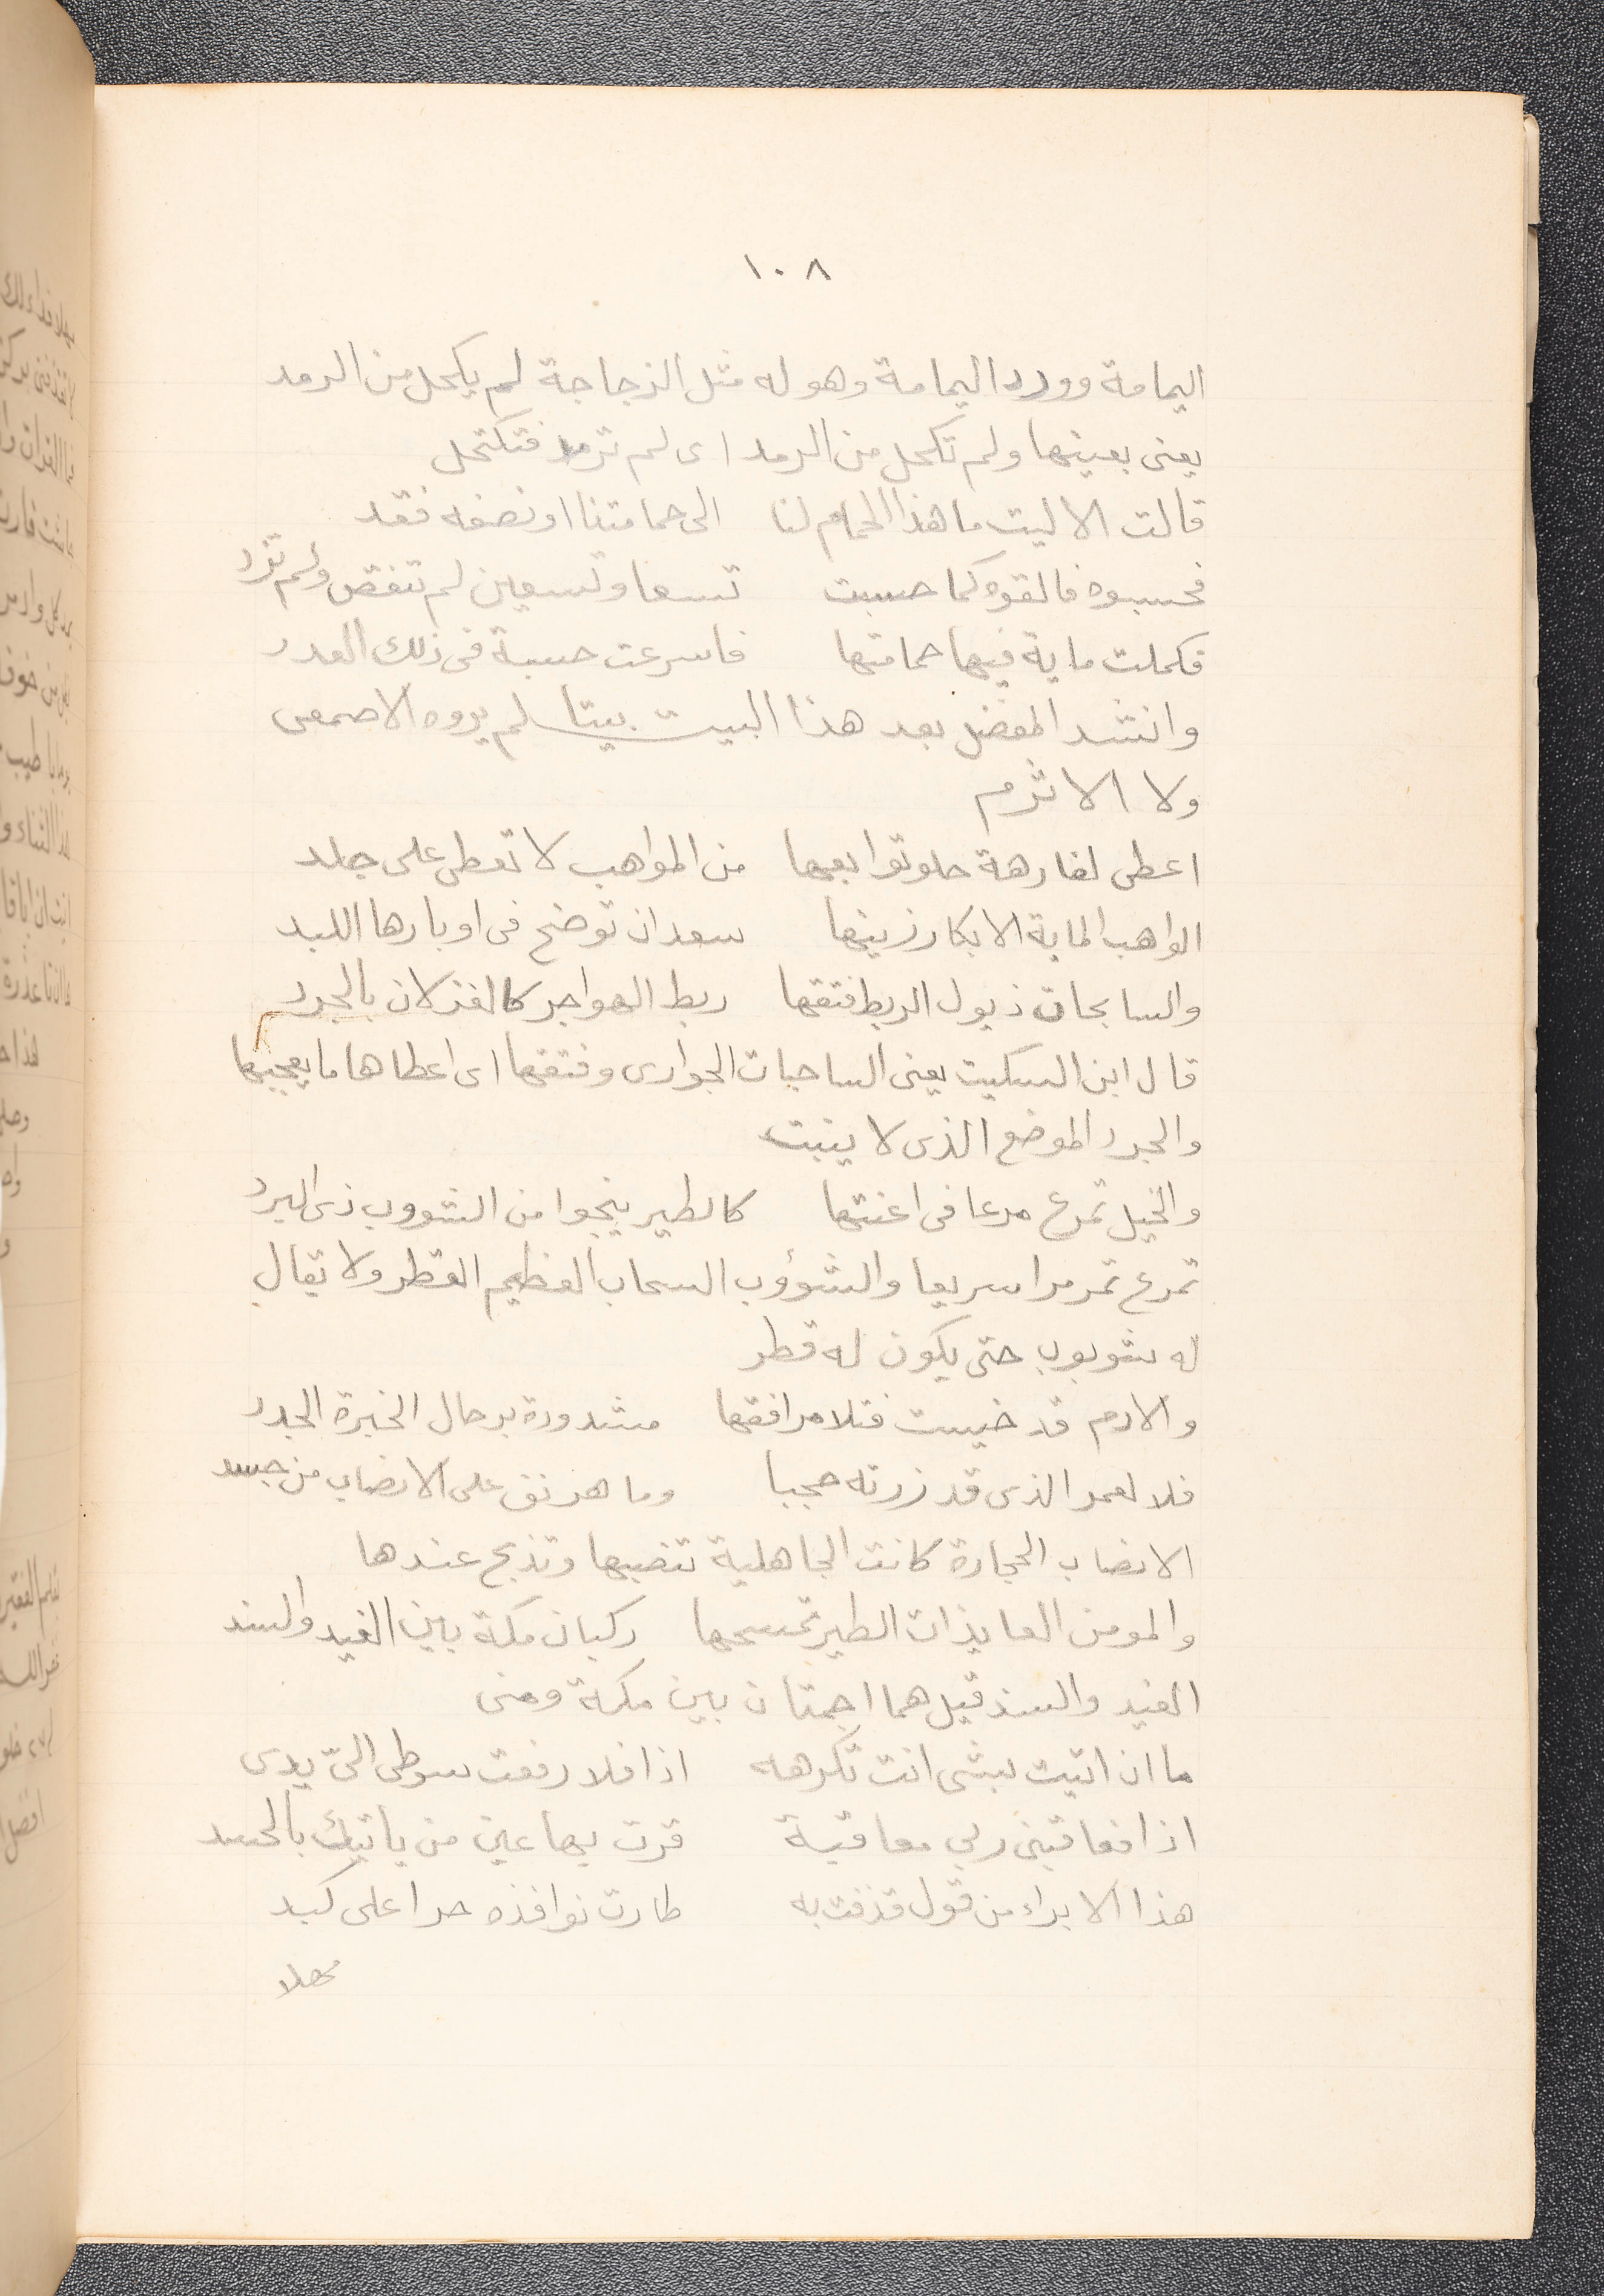 ١٠٨
اليمامة وورد اليمامة وهو له مثل الزجاجة لم يكحل من الرمد
يعنى بعينها ولم تكحل من الرمد اى لم ترمد فتكتحل
قالت الا ليت ما هذا الحمام لنا الى حمامتنا او نصفه فقد
فحسبوه فالقوه كما حسبت تسعا وتسعين لم تنقص ولم تزد
فكملت ماية فيها حمامتها فاسرعت حسبة فى ذلك العدد
وانشد المفضل بعد هذا البيت بيتا لم يروه الاصمعى
ولا الاثرم
اعطى لفارهة حلو توابعها من المواهب لا تعطى على جلد
الواهب الماية الابكار زينها سعدان توضح فى اوبارها اللبد
والسابحات ذيول الريط فتقها ربط الهواجر كالغزلان بالجرد
قال ابن السكيت يعنى الساحبات الجوارى وفتقها اى اعطاها ما يعجبها
والجرد الموضع الذى لا ينبت
والخيل تمرع مرعا فى اعنتها كالطير ينجوا من الشووب ذى البرد
تمرع تمر مرا سريعا والشؤوب السحاب العظيم القطر ولا يقال
له شوبوب حتى يكون له قطر
والادم قد خيست فتلا مرافقها مشدودة برحال الخيرة الجدد
فلا لعمر الذى قد زرته حججا وما هريق على الانصاب من جسد
الانصاب الحجارة كانت الجاهلية تنصبها وتذبح عندها
والمومن العايذات الطير تمسحها ركبان مكة بين الغيد والسند
الغيد والسند قيل هما اجمتان بين مكة ومنى
ما ان اتيت بشى انت تكرهه اذا فلا رفعت سوطى الىّ يدى
اذا فعاقبنى ربى معاقبة قرت بها عين من ياتيك بالحسد
هذا الابراء من قول قذفت به طارت نوافذه حرا على كبد
مهلا